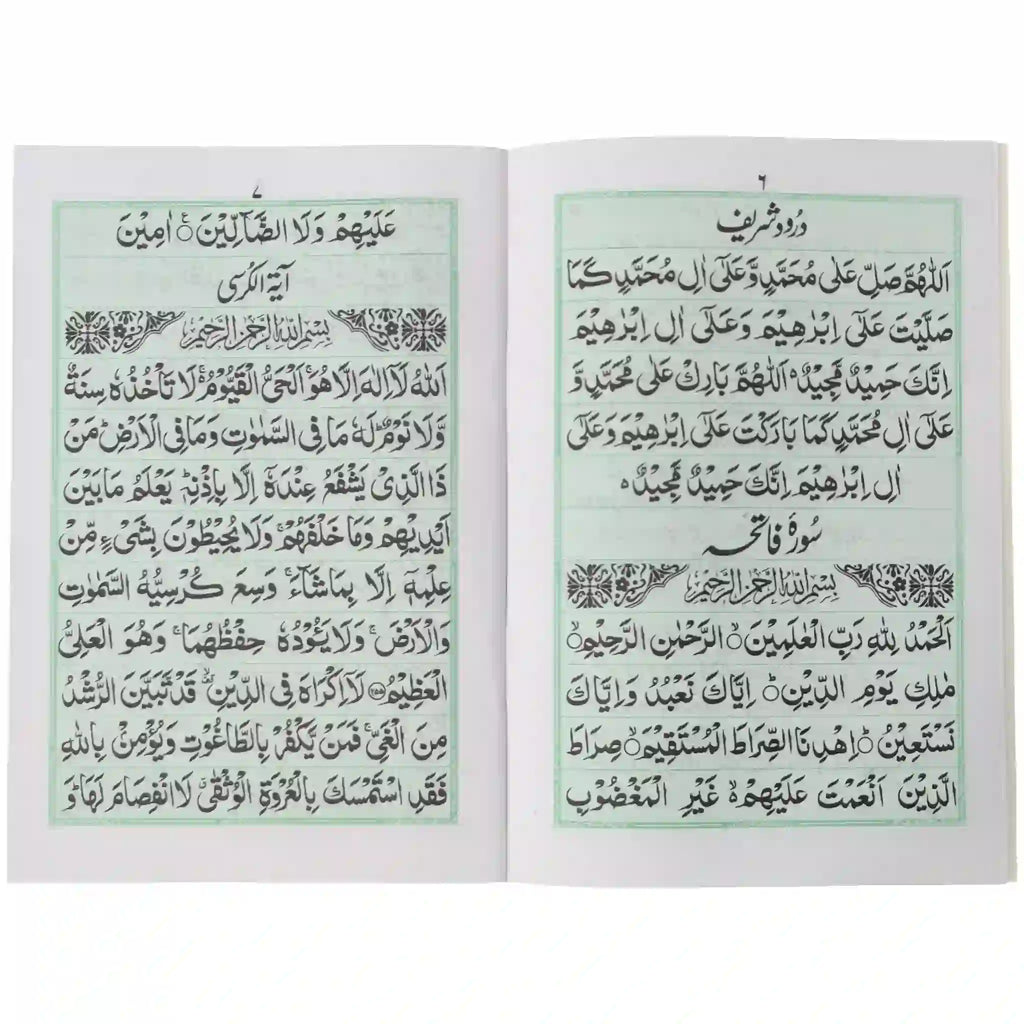 ٦
درود شریف
اَللّٰهُمَّ صَلِّ عَلٰى مُحَمَّدٍ وَّعَلٰٓى اٰلِ مُحَمَّدٍ كَمَا
صَلَّيْتَ عَلٰٓى اِبْرٰهِيْمَ وَعَلٰٓى اٰلِ اِبْرٰهِيْمَ
اِنَّكَ حَمِيْدٌ مَّجِيْدٌ ٥ اَللّٰهُمَّ بَارِكْ عَلٰى مُحَمَّدٍ وَّ
عَلٰٓى اٰلِ مُحَمَّدٍ كَمَا بَارَكْتَ عَلٰٓى اِبْرٰهِيْمَ وَعَلٰٓى
اٰلِ اِبْرٰهِيْمَ اِنَّكَ حَمِيْدٌ مَّجِيْدٌ ٥
سُورۂ فاتحہ
بِسْمِ اللّٰهِ الرَّحْمٰنِ الرَّحِيْمِ
اَلْحَمْدُ لِلّٰهِ رَبِّ الْعٰلَمِيْنَ ۙ الرَّحْمٰنِ الرَّحِيْمِ ۙ
مٰلِكِ يَوْمِ الدِّيْنِ ؕ اِيَّاكَ نَعْبُدُ وَاِيَّاكَ
نَسْتَعِيْنُ ؕ اِهْدِنَا الصِّرَاطَ الْمُسْتَقِيْمَ ۙ صِرَاطَ
الَّذِيْنَ اَنْعَمْتَ عَلَيْهِمْ ۙ غَيْرِ الْمَغْضُوْبِ
٧
عَلَيْهِمْ وَلَا الضَّآلِّيْنَ ۧ اٰمِيْنَ
آیۃ الکرسی
بِسْمِ اللّٰهِ الرَّحْمٰنِ الرَّحِيْمِ
اَللّٰهُ لَآ اِلٰهَ اِلَّا هُوَ ۚ اَلْحَيُّ الْقَيُّوْمُ ۚ لَا تَاْخُذُهٗ سِنَةٌ
وَّلَا نَوْمٌ ؕ لَهٗ مَا فِى السَّمٰوٰتِ وَمَا فِى الْاَرْضِ ؕ مَنْ
ذَا الَّذِىْ يَشْفَعُ عِنْدَهٗٓ اِلَّا بِاِذْنِهٖ ؕ يَعْلَمُ مَا بَيْنَ
اَيْدِيْهِمْ وَمَا خَلْفَهُمْ ۚ وَلَا يُحِيْطُوْنَ بِشَىْءٍ مِّنْ
عِلْمِهٖٓ اِلَّا بِمَا شَآءَ ۚ وَسِعَ كُرْسِيُّهُ السَّمٰوٰتِ
وَالْاَرْضَ ۚ وَلَا يَـُٔوْدُهٗ حِفْظُهُمَا ۚ وَهُوَ الْعَلِىُّ
الْعَظِيْمُ ٢٥٥ لَآ اِكْرَاهَ فِى الدِّيْنِ ۙ قَدْ تَّبَيَّنَ الرُّشْدُ
مِنَ الْغَىِّ ۚ فَمَنْ يَّكْفُرْ بِالطَّاغُوْتِ وَيُؤْمِنْۢ بِاللّٰهِ
فَقَدِ اسْتَمْسَكَ بِالْعُرْوَةِ الْوُثْقٰى ۗ لَا انْفِصَامَ لَهَا ؕ وَ